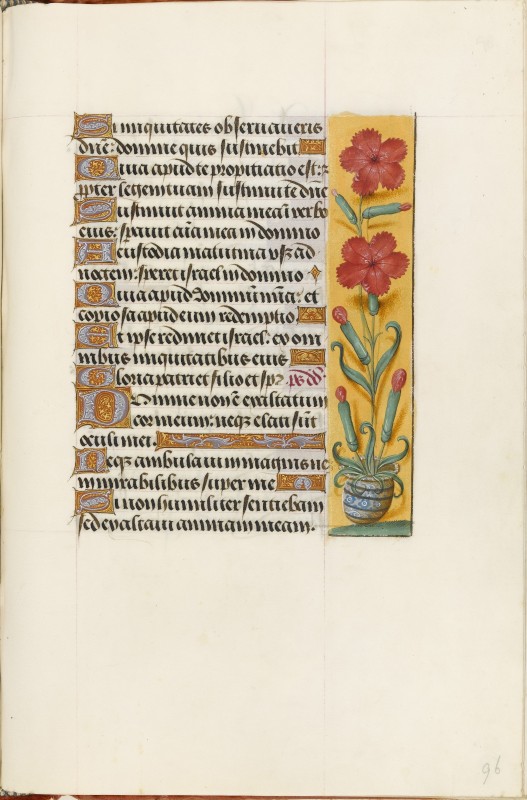 Si iniquitates observaveris
dn̄e: domine quis sustinebit
Quia apud te propitiatio est: ⁊
ꝓpter legem tuam sustinui te dn̄e
Sustinuit anima mea ī verbo
eius: speravit aīa mea in domino
A custodia matutina usq̄ ad
noctem: speret israel in domino
Quia apud dominum mīa: et
copiosa apud eum redemptio
Et ipse redimet israel: ex om
nibus iniquitatibus eius
Gloria patri et filio et sp̄. ps dd̄
Domine non ē exaltatum
cor meum: neqꝫ elati sūt
oculi mei.
Neqꝫ ambulavi in magnis ne
in mirabilibus super me
Si non humiliter sentiebam
sed exaltavi animam meam.
96